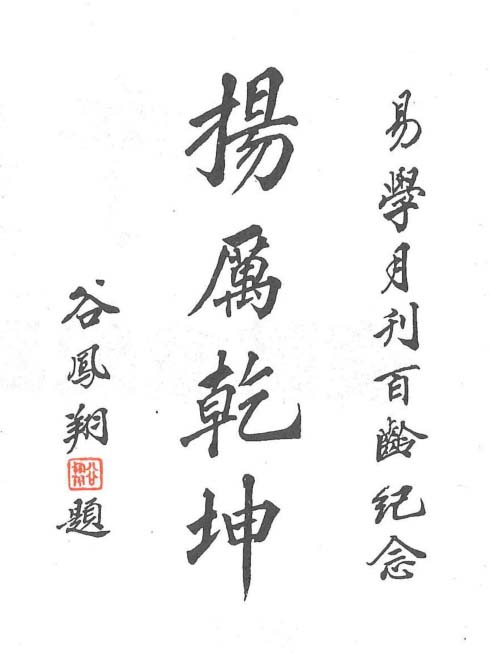 易學月刊百齡纪念
揚厲乾坤
谷鳳翔題